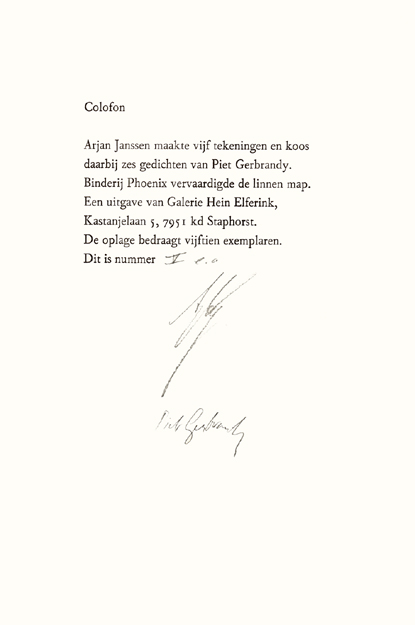 Colofon
Arjan Janssen maakte vijf tekeningen en koos
daarbij zes gedichten van Piet Gerbrandy.
Binderij Phoenix vervaardigde de linnen map.
Een uitgave van Galerie Hein Elferink,
Kastanjelaan 5, 7951 kd Staphorst.
De oplage bedraagt vijftien exemplaren.
Dit is nummer II e.a
Piet Gerbrandy